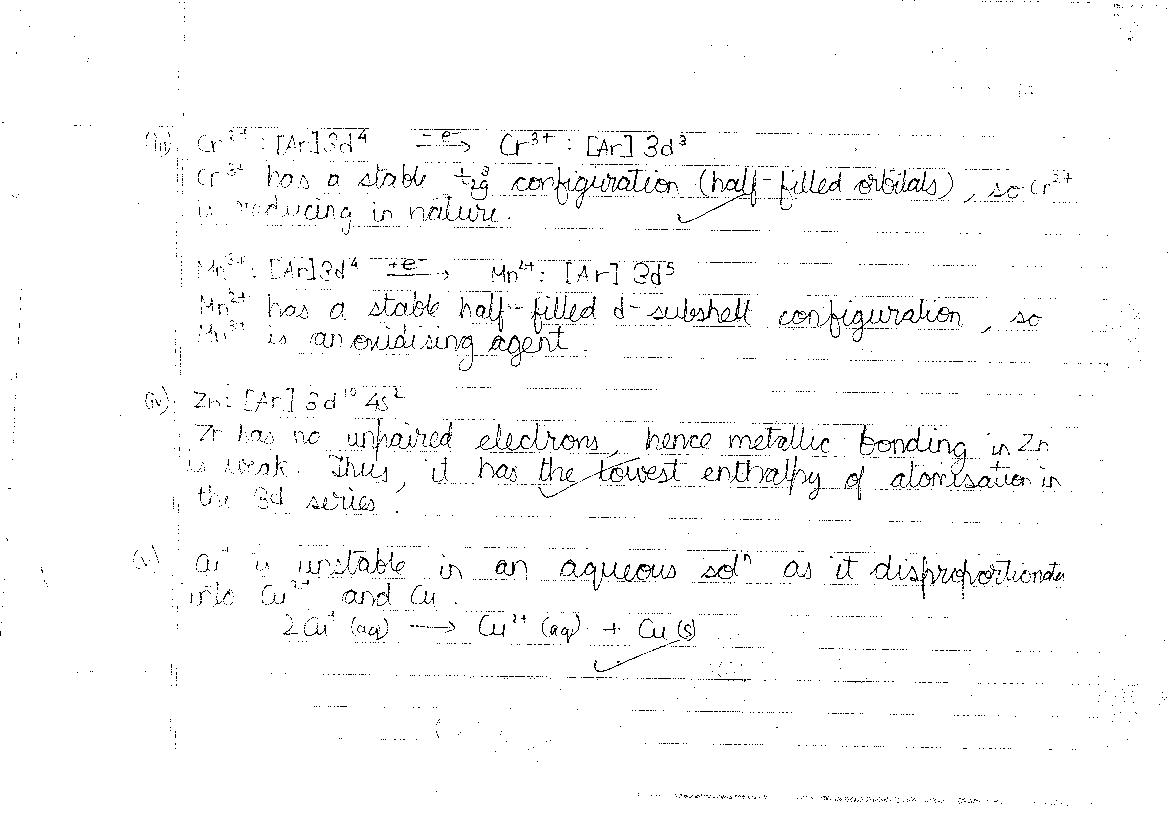 (iii) Cr²⁺ : [Ar] 3d⁴ —e⁻→ Cr³⁺ : [Ar] 3d³
Cr³⁺ has a stable t₂g³ configuration (half-filled orbitals), so Cr²⁺
is reducing in nature.
Mn³⁺ : [Ar] 3d⁴ +e⁻→ Mn²⁺ : [Ar] 3d⁵
Mn²⁺ has a stable half-filled d-subshell configuration, so
Mn³⁺ is an oxidising agent.
(iv) Zn : [Ar] 3d¹⁰ 4s²
Zn has no unpaired electrons, hence metallic bonding in Zn
is weak. Thus, it has the lowest enthalpy of atomisation in
the 3d series.
(v) Cu⁺ is unstable in an aqueous solⁿ as it disproportionates
into Cu²⁺ and Cu.
2Cu⁺ (aq) → Cu²⁺ (aq) + Cu (s)